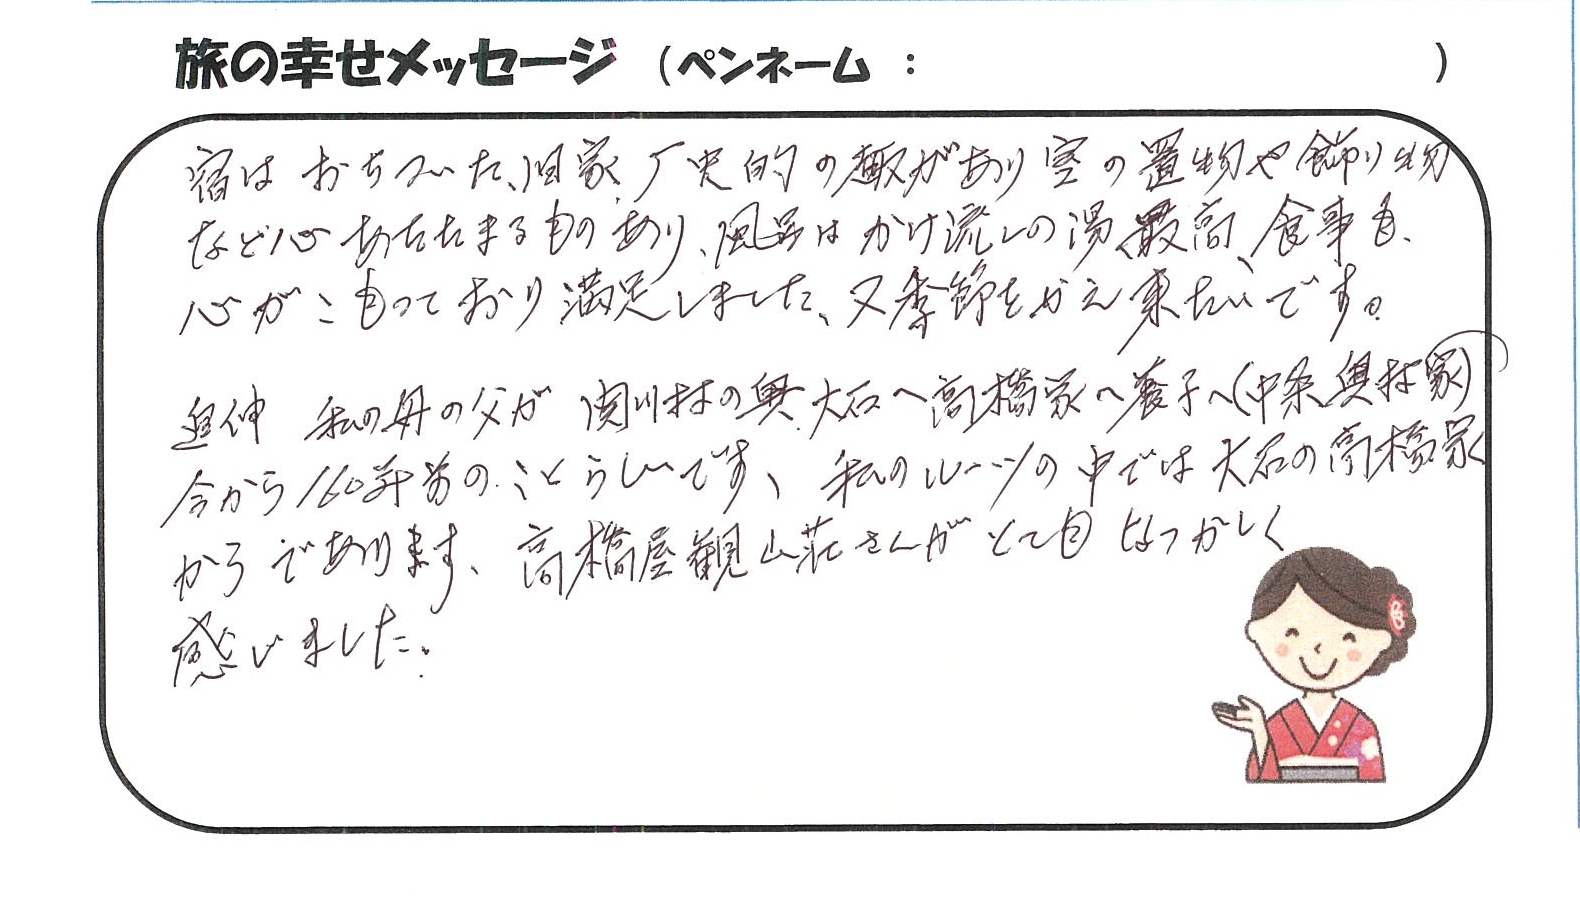 旅の幸せメッセージ （ペンネーム ： ）
宿は おちついた、旧家、厂史的の趣があり 室の置物や飾り物
など心あたたまるものあり、風呂はかけ流しの湯、最高、食事も、
心がこもっており満足しました、又季節をかえ来たいです。
追伸 私の母の父が 関川村の奥 大石へ高橋家へ養子へ(中条奥村家)
今から160年前のことらしいです、 私のルーツの中では大石の高橋家
からであります、 高橋屋観山荘さんがとてもなつかしく
感じました.